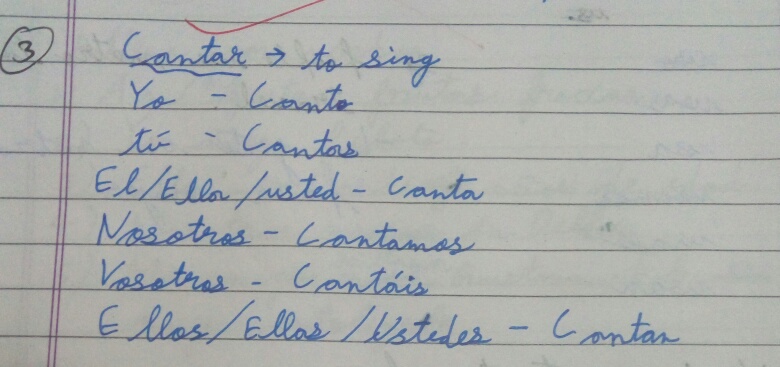 3 Cantar → to sing
Yo - Canto
tú - Cantas
El/Ella/usted - Canta
Nosotros - Cantamos
Vosotros - Cantáis
Ellos/Ellas/Ustedes - Cantan